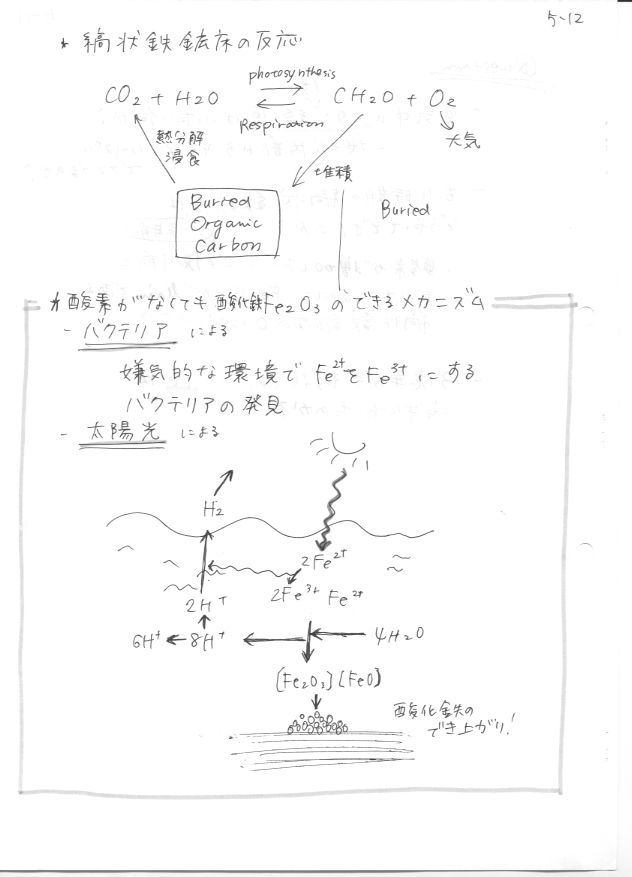 5-12
* 縞状鉄鉱床の反応
photosynthesis
CO2 + H2O ⇄ CH2O + O2
Respiration
大気
熱分解
浸食
堆積
Buried
Organic
Carbon
Buried
* 酸素がなくても酸化鉄Fe2O3のできるメカニズム
- バクテリア による
嫌気的な環境で Fe2+をFe3+にする
バクテリアの発見
- 太陽光 による
H2
2Fe2+
2H+ 2Fe3+ Fe2+
6H+ ← 8H+ ← 4H2O
[Fe2O3][FeO]
酸化鉄の
でき上がり!